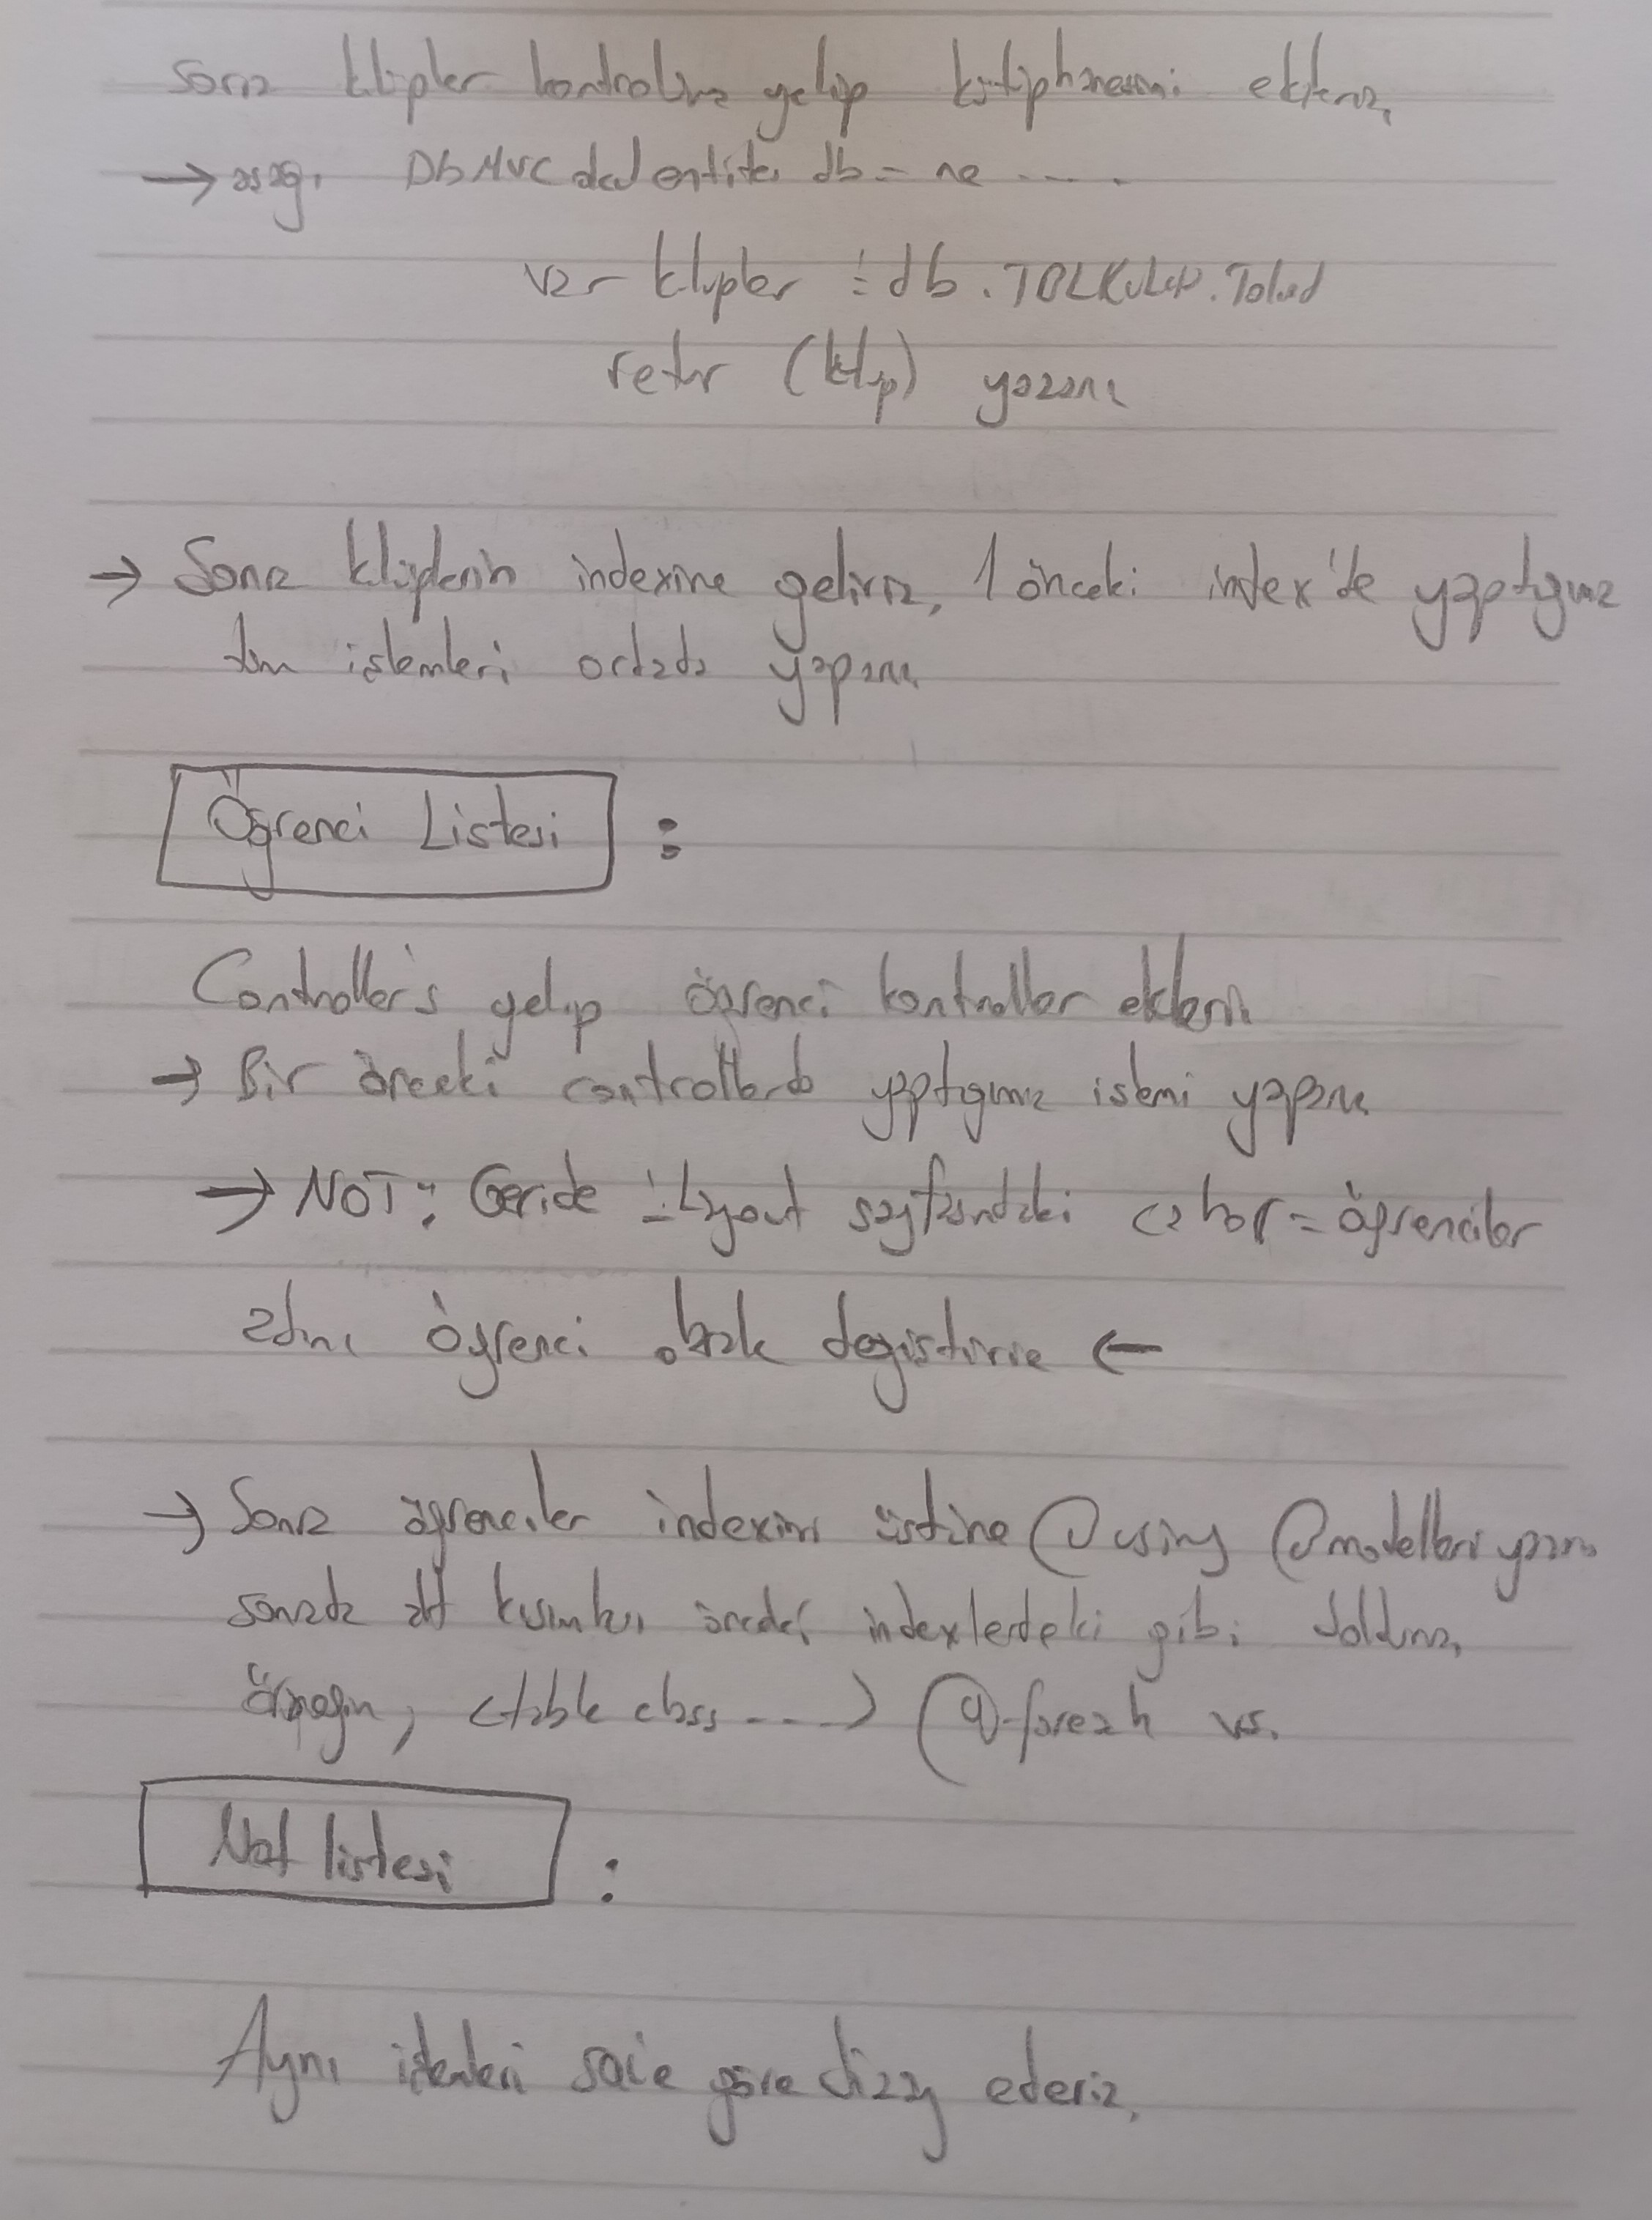 Sonra klüpler kontrolüne gelip kütüphanesini ekleriz,
→ aşağı DbMVC entities db = ne ....
var klüpler = db.TBLKULUP.Tolist
retur (klüp) yazarız
→ Sonra klüplerin indexine geliriz, 1 önceki index'de yaptığımız
tüm işlemleri orada yaparız
Öğrenci Listesi :
Controller's gelip öğrenci kontroller eklerin
→ Bir önceki controllerda yaptığımız islemi yaparız
→ NOT: Geride Layout sayfasındaki = öğrenciler
adını öğrenci olarak değiştirin ←
→ Sonra öğrenciler indexinin üstüne @using @modelleri yazarız
sonrada alt kısımları önceki indexlerdeki gibi doldururuz,
Örneğin, <table class ....> @foreach vs.
Not listesi :
Aynı işlemleri göre dizay ederiz.